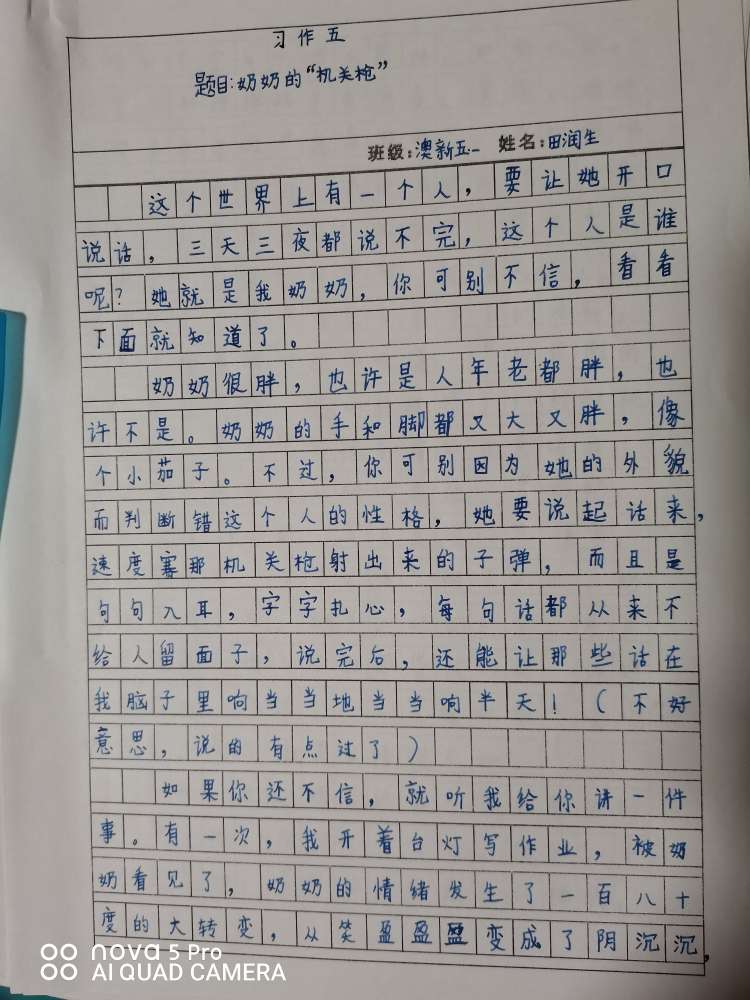 习作五
题目:奶奶的“机关枪”
班级:澳新五一 姓名:田润生
这个世界上有一个人，要让她开口
说话，三天三夜都说不完，这个人是谁
呢？她就是我奶奶，你可别不信，看看
下面就知道了。
奶奶很胖，也许是人年老都胖，也
许不是。奶奶的手和脚都又大又胖，像
个小茄子。不过，你可别因为她的外貌
而判断错这个人的性格，她要说起话来，
速度赛那机关枪射出来的子弹，而且是
句句入耳，字字扎心，每句话都从来不
给人留面子，说完后，还能让那些话在
我脑子里响当当地当当响半天！（不好
意思，说的有点过了）
如果你还不信，就听我给你讲一件
事。有一次，我开着台灯写作业，被奶
奶看见了，奶奶的情绪发生了一百八十
度的大转变，从笑盈盈盈变成了阴沉沉，
nova 5 Pro
AI QUAD CAMERA